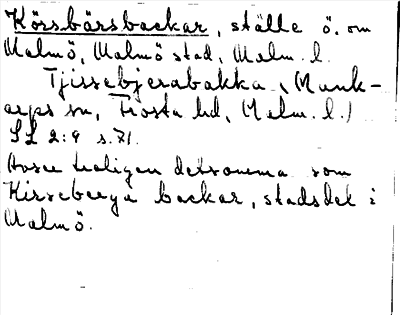 Körsbärsbackar, ställe ö. om
Malmö, Malmö stad, Malm. l.
Tjissebjerabakka (Mank-
arps sn, Frosta hd, Malm. l.)
SL 2:9 s. 71.
troligen detsamma som
Kirseberga backar, stadsdel i
Malmö.